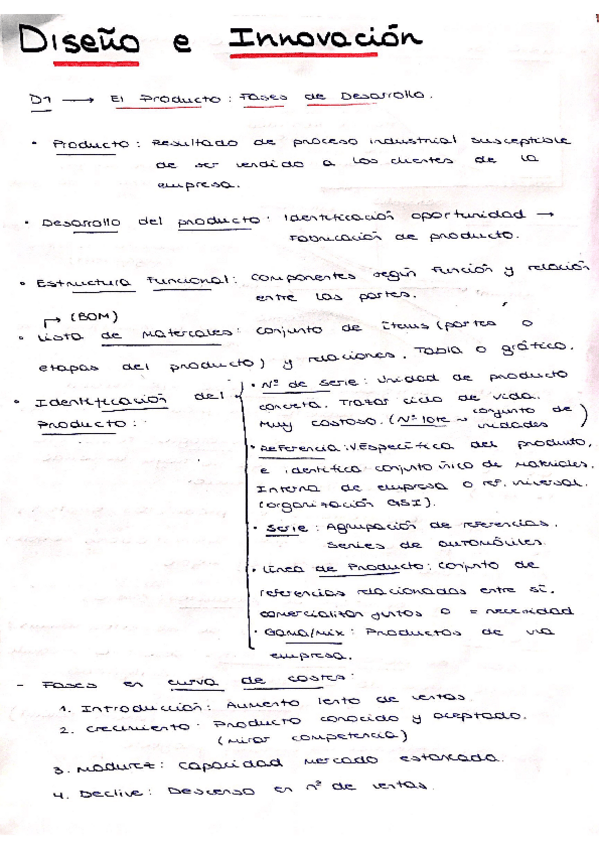 Diseño e Innovación
D1 → El Producto: Fases de Desarrollo.
• Producto: Resultado de proceso industrial susceptible
de ser vendido a los clientes de la
empresa.
• Desarrollo del producto: Identificación oportunidad →
Fabricación de producto.
• Estructura Funcional: Componentes según función y relación
entre las partes.
↱ (BOM)
• Lista de Materiales: conjunto de ítems (partes o
etapas del producto) y relaciones. Tabla o gráfico.
• Identificación del
Producto:
• Nº de serie: Unidad de producto
concreta. Trazar ciclo de vida.
Muy costoso. (Nº lote ~ conjunto de
unidades)
• Referencia: Específica del producto,
e identifica conjunto único de materiales.
Interna de empresa o ref. universal.
(organización GSI).
• Serie: Agrupación de referencias.
Series de automóviles.
• Línea de Producto: conjunto de
referencias relacionadas entre sí.
comercializan juntos o = necesidad
• Gama/Mix: Productos de una
empresa.
- Fases en curva de costes:
1. Introducción: Aumento lento de ventas.
2. Crecimiento: Producto conocido y aceptado.
(mirar competencia)
3. Madurez: Capacidad mercado estancada.
4. Declive: Descenso en nº de ventas.